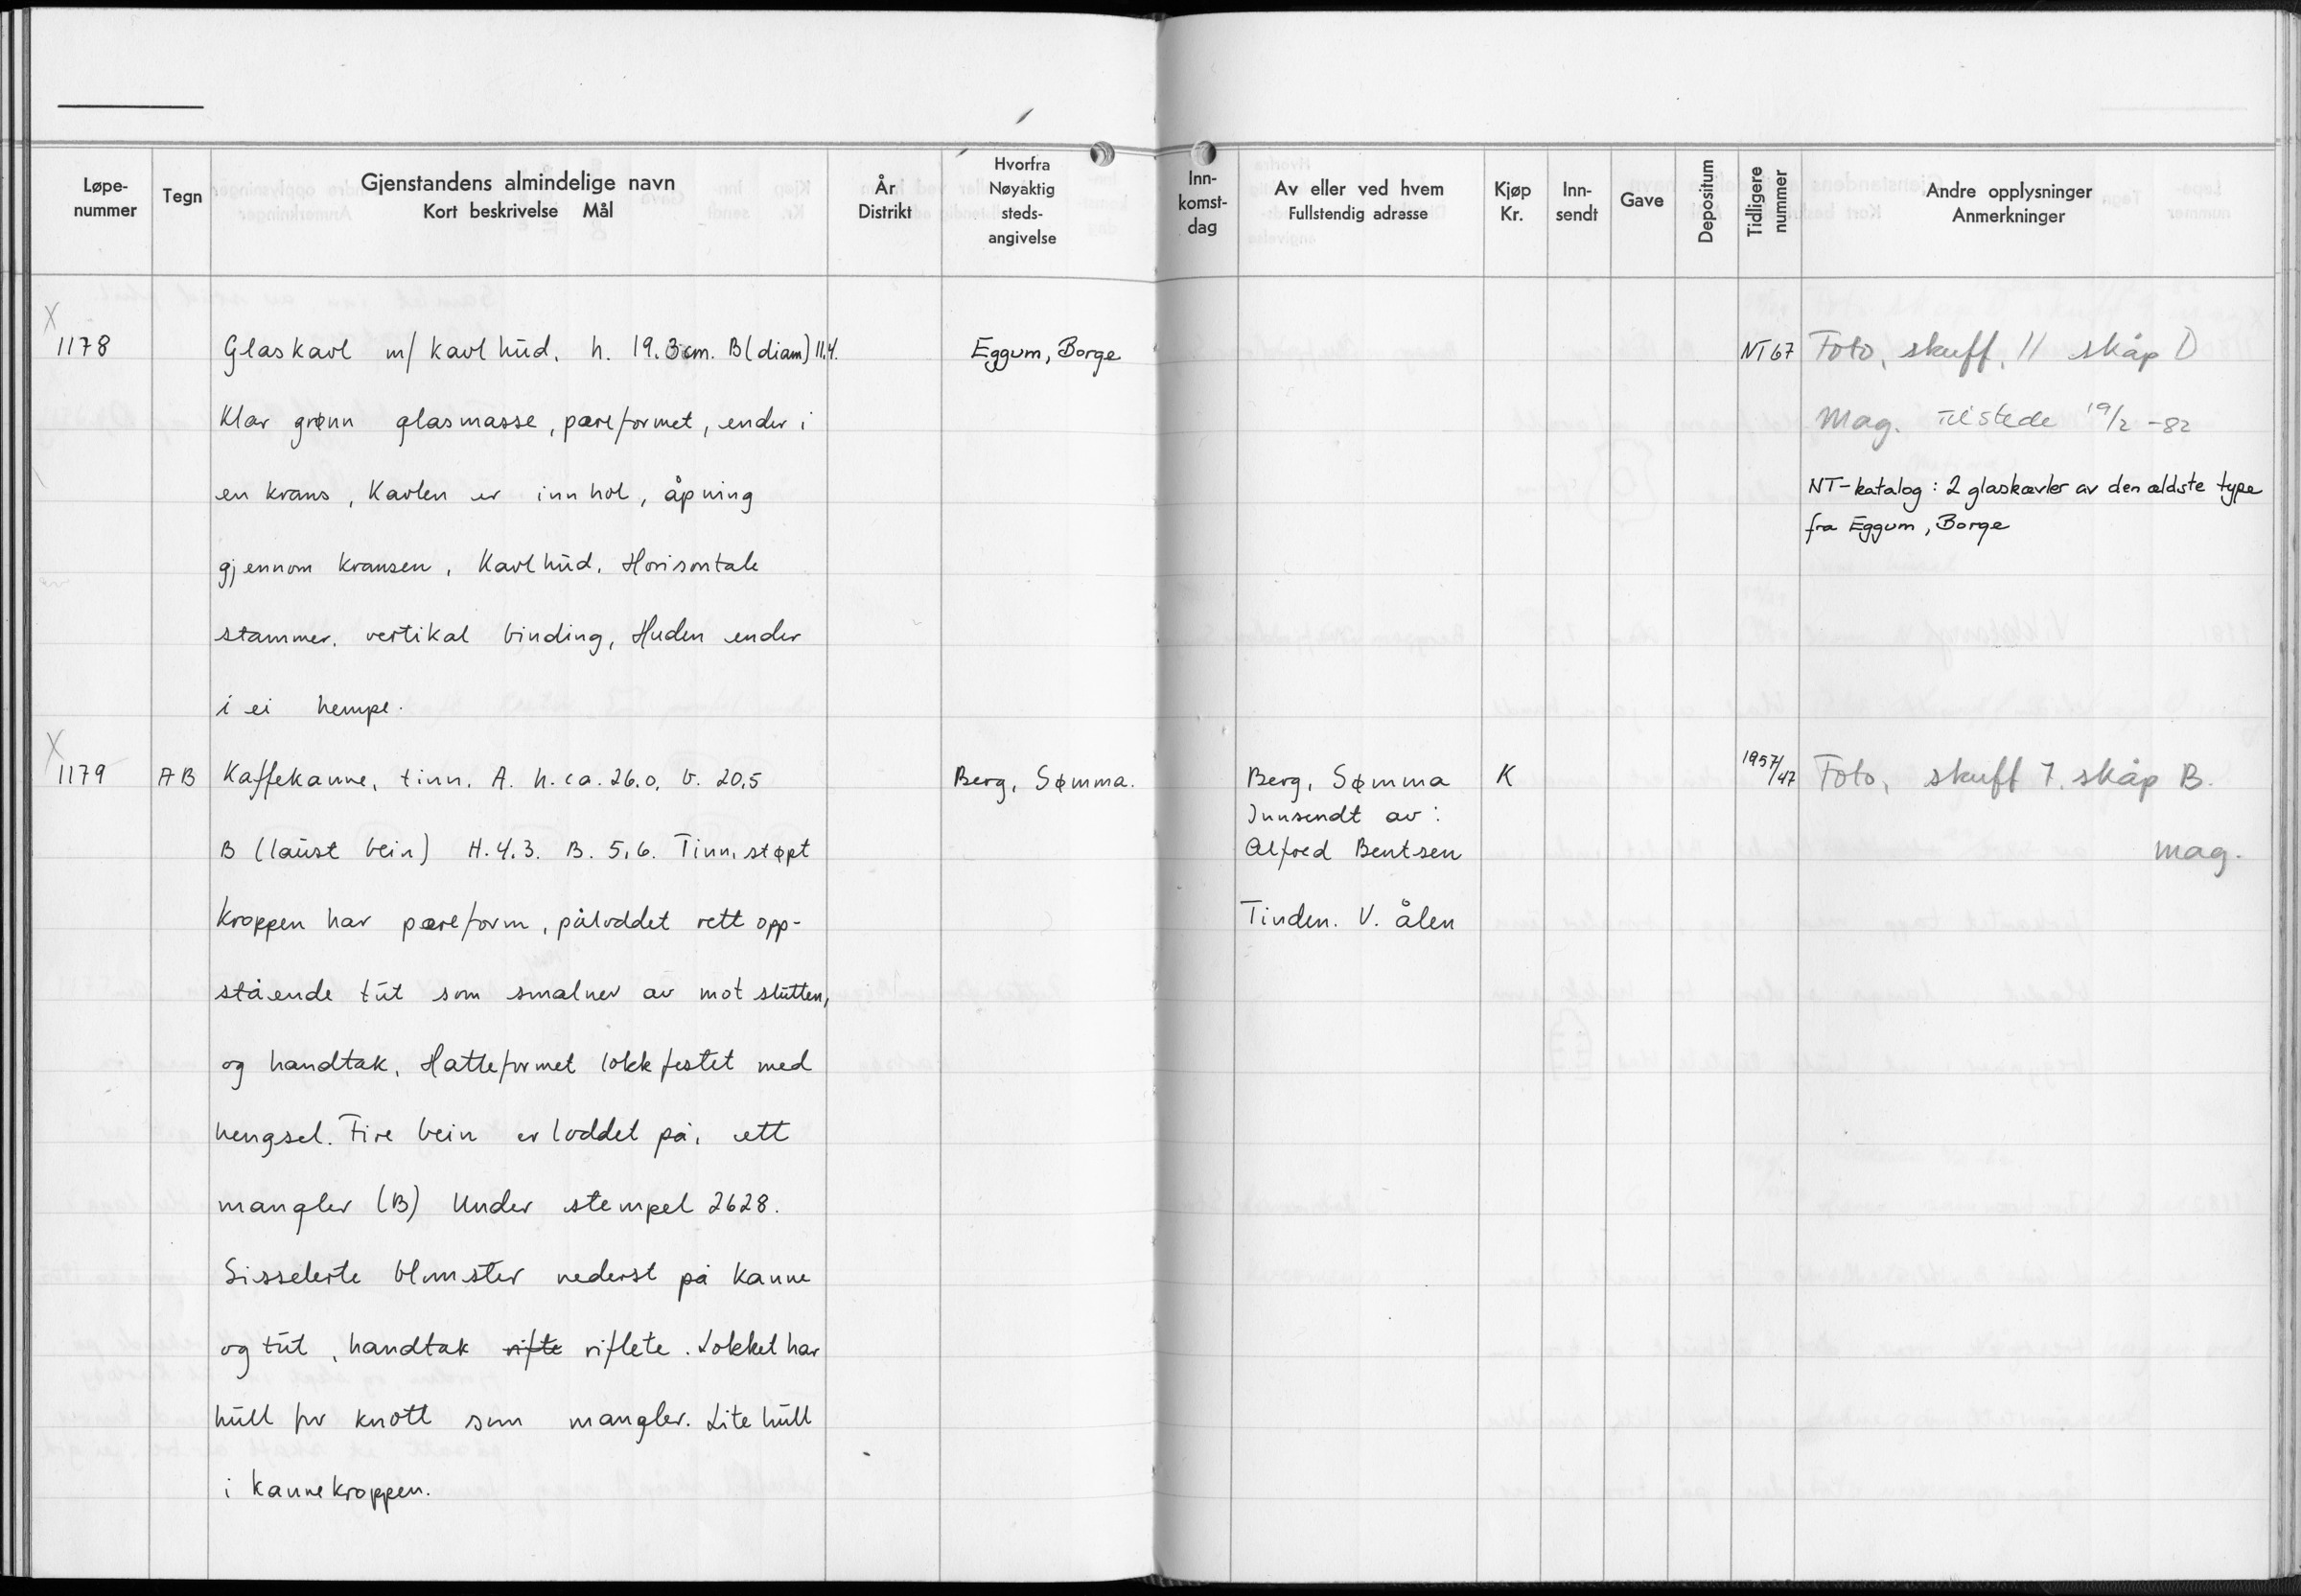 Løpe-
nummer
Tegn
Gjenstandens almindelige navn
Kort beskrivelse Mål
År
Distrikt
Hvorfra
Nøyaktig
steds-
angivelse
Inn-
komst-
dag
Av eller ved hvem
Fullstendig adresse
Kjøp
Kr.
Inn-
sendt
Gave
Depositum
Tidligere
nummer
Andre opplysninger
Anmerkninger
X
1178
Glaskavl m/ kavlhud. h. 19.3 cm. B(diam) 11.4.
Klar grønn glasmasse, pæreformet, ender i
en krans, Kavlen er innhol, åpning
gjennom kransen, Kavlhud. Horisontale
stammer. vertikal binding, Huden ender
i ei hempe.
Eggum, Borge
NT 67
Foto, skuff. 11 skåp D
Mag. Tilstede 19/2 -82
NT-katalog: 2 glaskavler av den ældste type
fra Eggum, Borge
X
1179
AB
Kaffekanne, tinn. A. h. ca. 26.0, b. 20.5
B (laust bein) H. 4.3. B. 5.6. Tinn, støpt
kroppen har pæreform, påloddet rett opp-
stående tut som smalner av mot slutten,
og handtak, Hatteformet lokk festet med
hengsel. Fire bein er loddet på, ett
mangler (B) Under stempel 2628.
Sisselerte blomster nederst på kanne
og tut, handtak rifte riflete. Lokket har
hull for knott som mangler. Lite hull
i kannekroppen.
Berg, Sømma.
Berg, Sømma
Innsendt av:
Alfred Bentsen
Tinden. V. ålen
K
1957/47
Foto, skuff 7. skåp B.
mag.